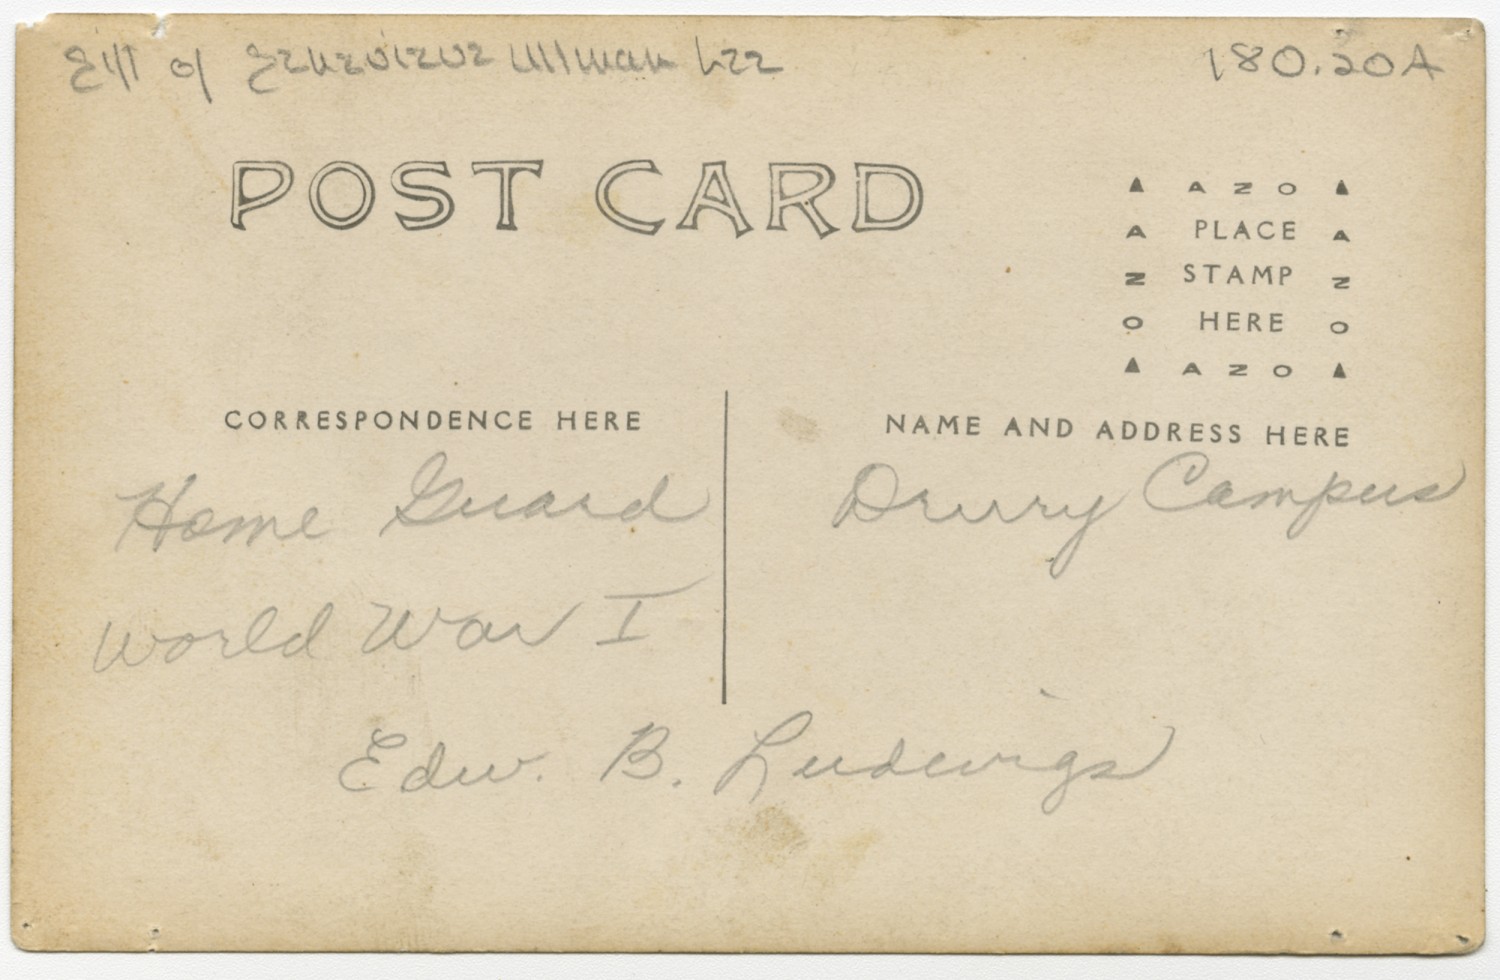 Gift of Genevieve Ullman Lee
180.20A
POST CARD
▲ AZO ▲
A PLACE A
Z STAMP Z
O HERE O
▲ AZO ▲
CORRESPONDENCE HERE
NAME AND ADDRESS HERE
Home Guard
Drury Campus
World War I
Edw. B. Ludewigs